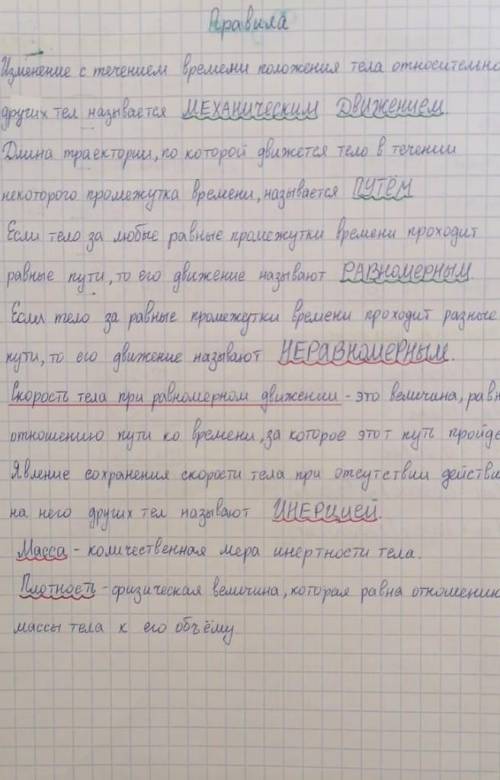 Правила
Изменение с течением времени положения тела относительно
других тел называется МЕХАНИЧЕСКИМ ДВИЖЕНИЕМ.
Длина траектории, по которой движется тело в течении
некоторого промежутка времени, называется ПУТЁМ
Если тело за любые равные промежутки времени проходит
равные пути, то его движение называют РАВНОМЕРНЫМ.
Если тело за равные промежутки времени проходит разные
пути, то его движение называют НЕРАВНОМЕРНЫМ.
Скорость тела при равномерном движении - это величина, равн
отношению пути ко времени, за которое этот путь пройде
Явление сохранения скорости тела при отсутствии действи
на него других тел называют ИНЕРЦИЕЙ.
Масса - количественная мера инертности тела.
Плотность - физическая величина, которая равна отношению
массы тела к его объёму